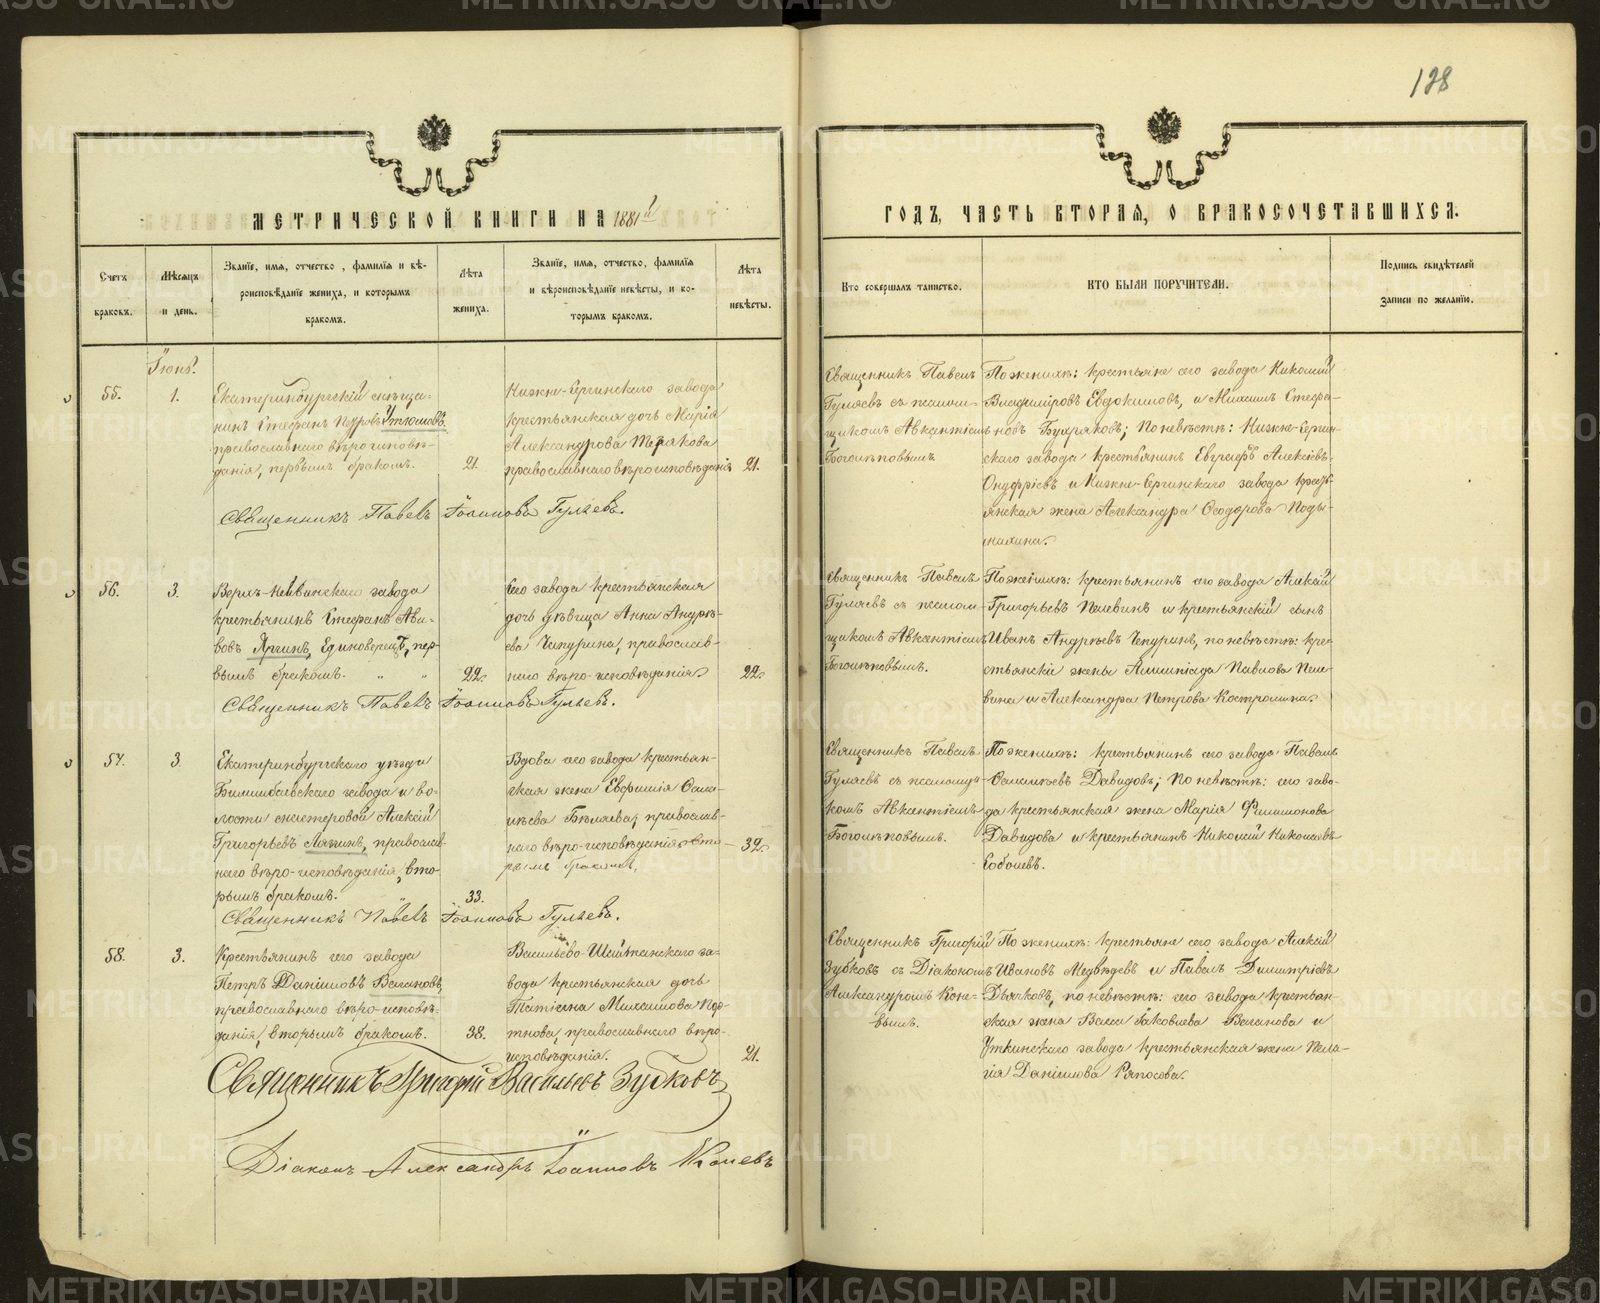 128
МЕТРИЧЕСКОЙ КНИГИ НА 1881 й
ГОДЪ, ЧАСТЬ ВТОРАЯ, О БРАКОСОЧЕТАВШИХСЯ.
Счетъ браковъ.
Мѣсяцъ и день.
Званіе, имя, отчество, фамилія и вѣ-
роисповѣданіе жениха, и которымъ
бракомъ.
Лѣта жениха.
Званіе, имя, отчество, фамилія
и вѣроисповѣданіе невѣсты, и ко-
торымъ бракомъ.
Лѣта невѣсты.
Кто совершалъ таинство.
КТО БЫЛИ ПОРУЧИТЕЛИ.
Подпись свидѣтелей
записи по желанію.
55.
1.
Екатеринбургскій мѣща-
нинъ Стефанъ Петровъ Утюмовъ,
православнаго вѣроисповѣ-
данія, первымъ бракомъ.
21.
Нижне-Сергинскаго завода
крестьянская дочь Марія
Александрова
православнаго вѣроисповѣданія
21.
Священникъ Павелъ
Гуляевъ съ псалом-
щикомъ Авксентіемъ
Боголѣповымъ.
По женихѣ: крестьяне сего завода Николай
Владиміровъ Евдокимовъ, и Михаилъ Стефа-
новъ по невѣстѣ: Нижне-Сергин-
скаго завода крестьянинъ Евграфъ Алексѣевъ
Онуфріевъ и Нижне-Сергинскаго завода кресть-
янская жена Александра Ѳеодорова
Священникъ Павелъ Іоанновъ Гуляевъ.
56.
3.
Верхъ-Нейвинскаго завода
крестьянинъ Стефанъ
Аргинъ, Единоверецъ, пер-
вымъ бракомъ. " "
22.
Сего завода крестьянская
дочь дѣвица Анна Андрѣ-
ева Чепурина, православ-
наго вѣро-исповѣданія
22.
Священникъ Павелъ
Гуляевъ съ псалом-
щикомъ Авксентіемъ
Боголѣповымъ.
По женихѣ: крестьянинъ сего завода Алексѣй
Григорьевъ Пелевинъ и крестьянскій сынъ
Иванъ Андрѣевъ Чепуринъ, по невѣстѣ: кре-
стьянскія жены Павлова Пеле-
вина и Александра Петрова Костромина.
Священникъ Павелъ Іоанновъ Гуляевъ.
57.
3.
Екатеринбургскаго уѣзда
Билимбаевскаго завода и во-
лости мастеровой Алексѣй
Григорьевъ православ-
наго вѣро-исповѣданія, вто-
рымъ бракомъ.
33.
Вдова сего завода крестьян-
ская жена
Бѣляева, православ-
наго вѣро-исповѣданія вто-
рымъ бракомъ.
32.
Священникъ Павелъ
Гуляевъ съ псаломщи-
комъ Авксентіемъ
Боголѣповымъ.
По женихѣ: крестьянинъ сего завода Павелъ
Давидовъ; по невѣстѣ: сего заво-
да крестьянская жена Марія Филимонова
Давидова и крестьянинъ Николай Николаевъ
Соболевъ.
Священникъ Павелъ Іоанновъ Гуляевъ.
58.
3.
Крестьянинъ сего завода
Петръ Даніиловъ Вагановъ,
православнаго вѣро-исповѣ-
данія, вторымъ бракомъ.
38.
Васильево-Шайтанскаго за-
вода крестьянская дочь
Татіана Михаилова Пор-
тнова, православнаго вѣро-
исповѣданія.
21.
Священникъ Григорій
Зубковъ съ Діакономъ
Александромъ Коне-
вымъ.
По женихѣ: крестьяне сего завода Алексѣй
Ивановъ Медвѣдевъ и Павелъ Димитріевъ
Дьячковъ, по невѣстѣ: сего завода крестьян-
ская жена Васса Іаковлева Ваганова и
Уткинскаго завода крестьянская жена Пела-
гія Даніилова
Священникъ Григорій Васильевъ Зубковъ
Діаконъ Александръ Іоанновъ Коневъ
METRIKI.GASO-URAL.RU